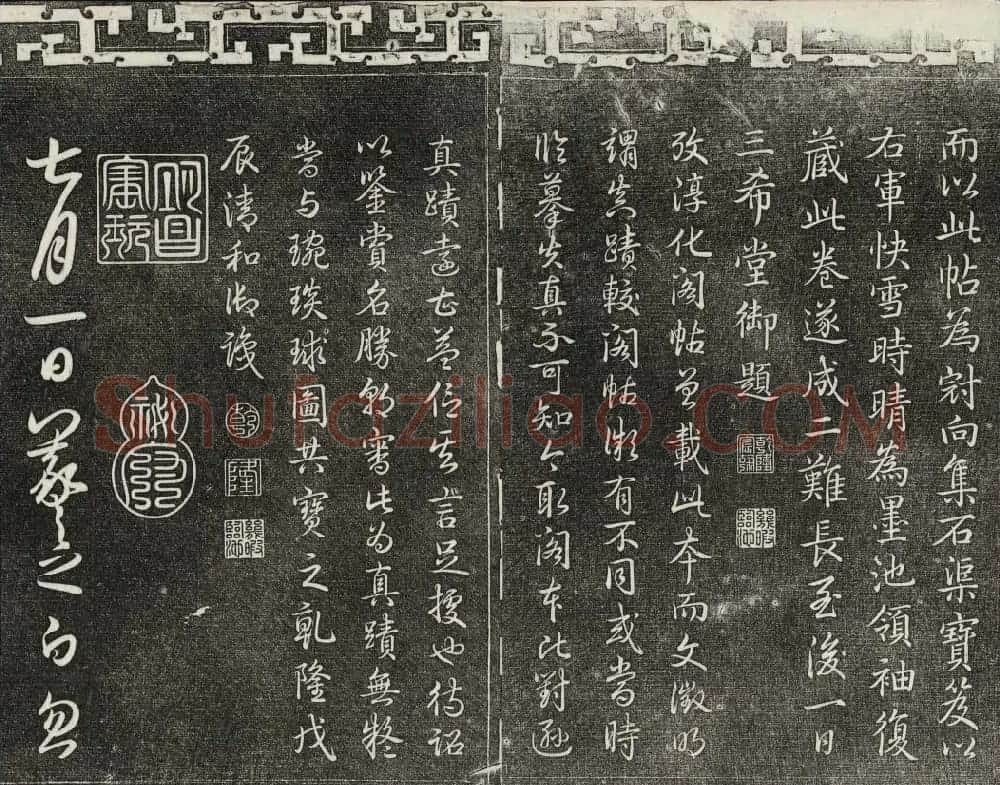 而以此帖為冠向集石渠寶笈以
右軍快雪時晴為墨池領袖復
藏此卷遂成二難長至後一日
三希堂御題
乾隆宸翰
幾暇臨池
攷淳化閣帖曾載此本而文徵明
謂真蹟較閣帖微有不同或當時
臨摹失真不可知今取閣本比對遜
真蹟遠甚益信其言足據也待詔
以鑒賞名勝朝審此為真蹟無疑
當与琬琰球圖共寶之乾隆戊
辰清和御識
乾
隆
幾暇臨池
明昌寶玩
七月一日羲之白忽
Shufaziliao.COM